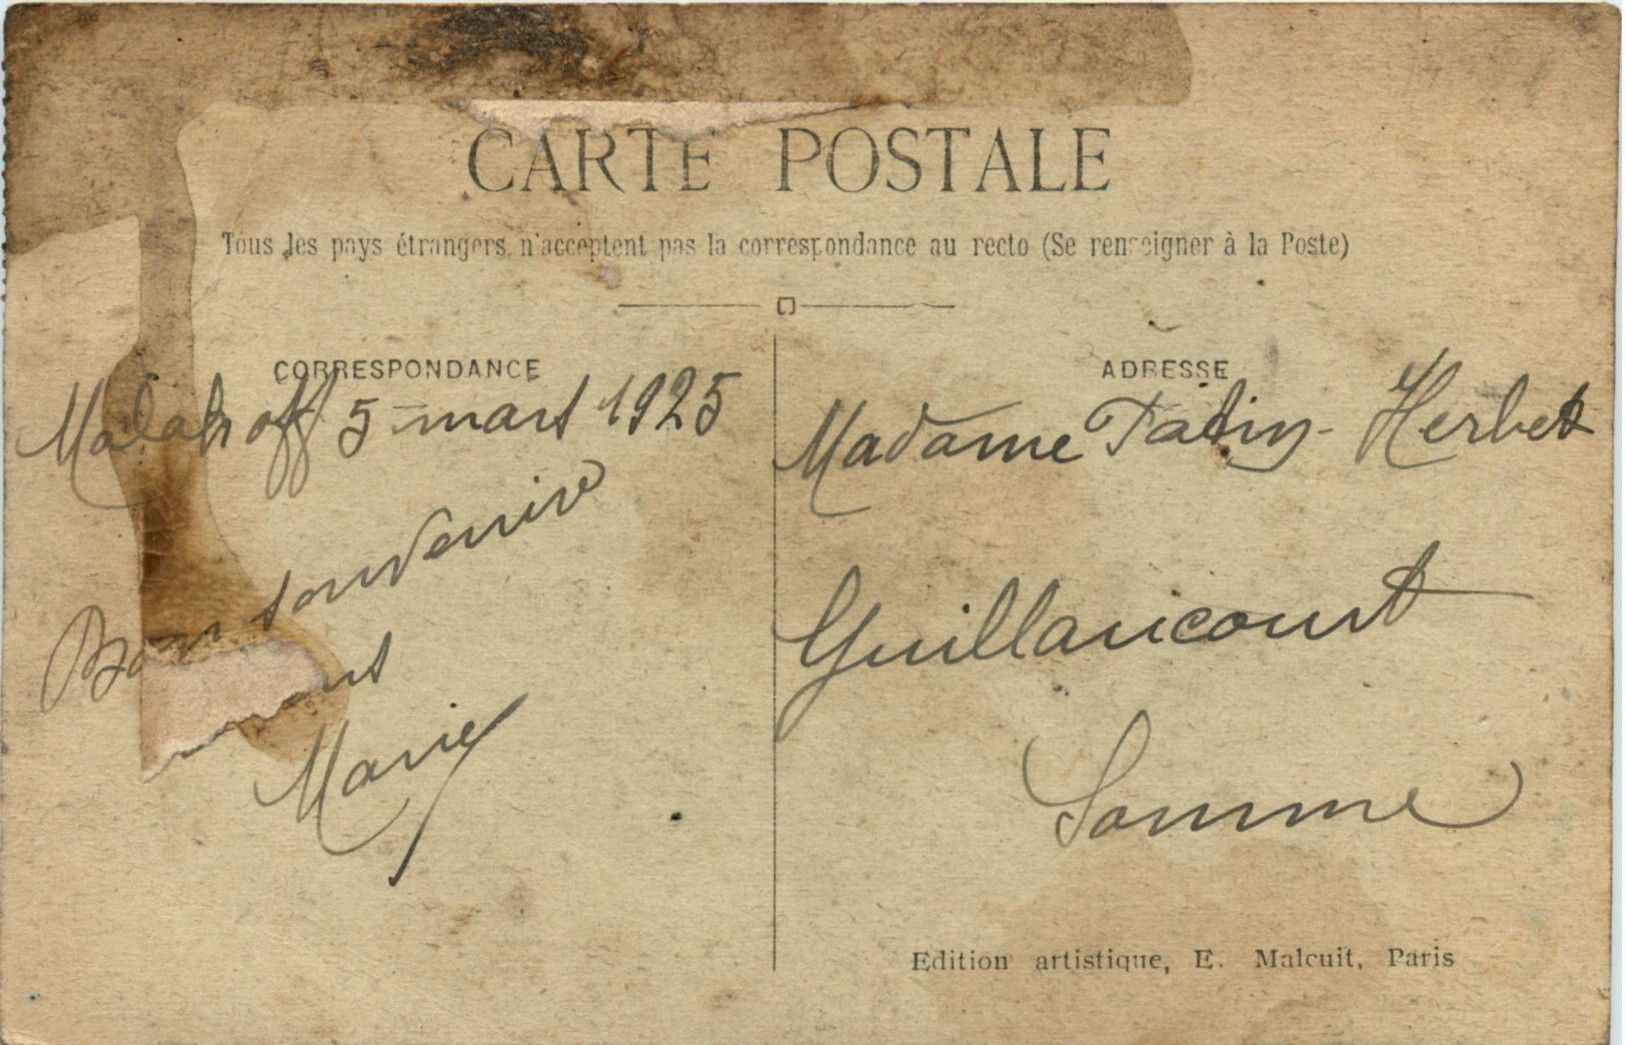 CARTE POSTALE
Tous les pays étrangers n'acceptent pas la correspondance au recto (Se renseigner à la Poste)
CORRESPONDANCE
Malakoff 5 mars 1925
Bon souvenire
Marie
ADRESSE
Madame Patin-Herbet
Guillaucourt
Somme
Edition artistique, E. Malcuit, Paris